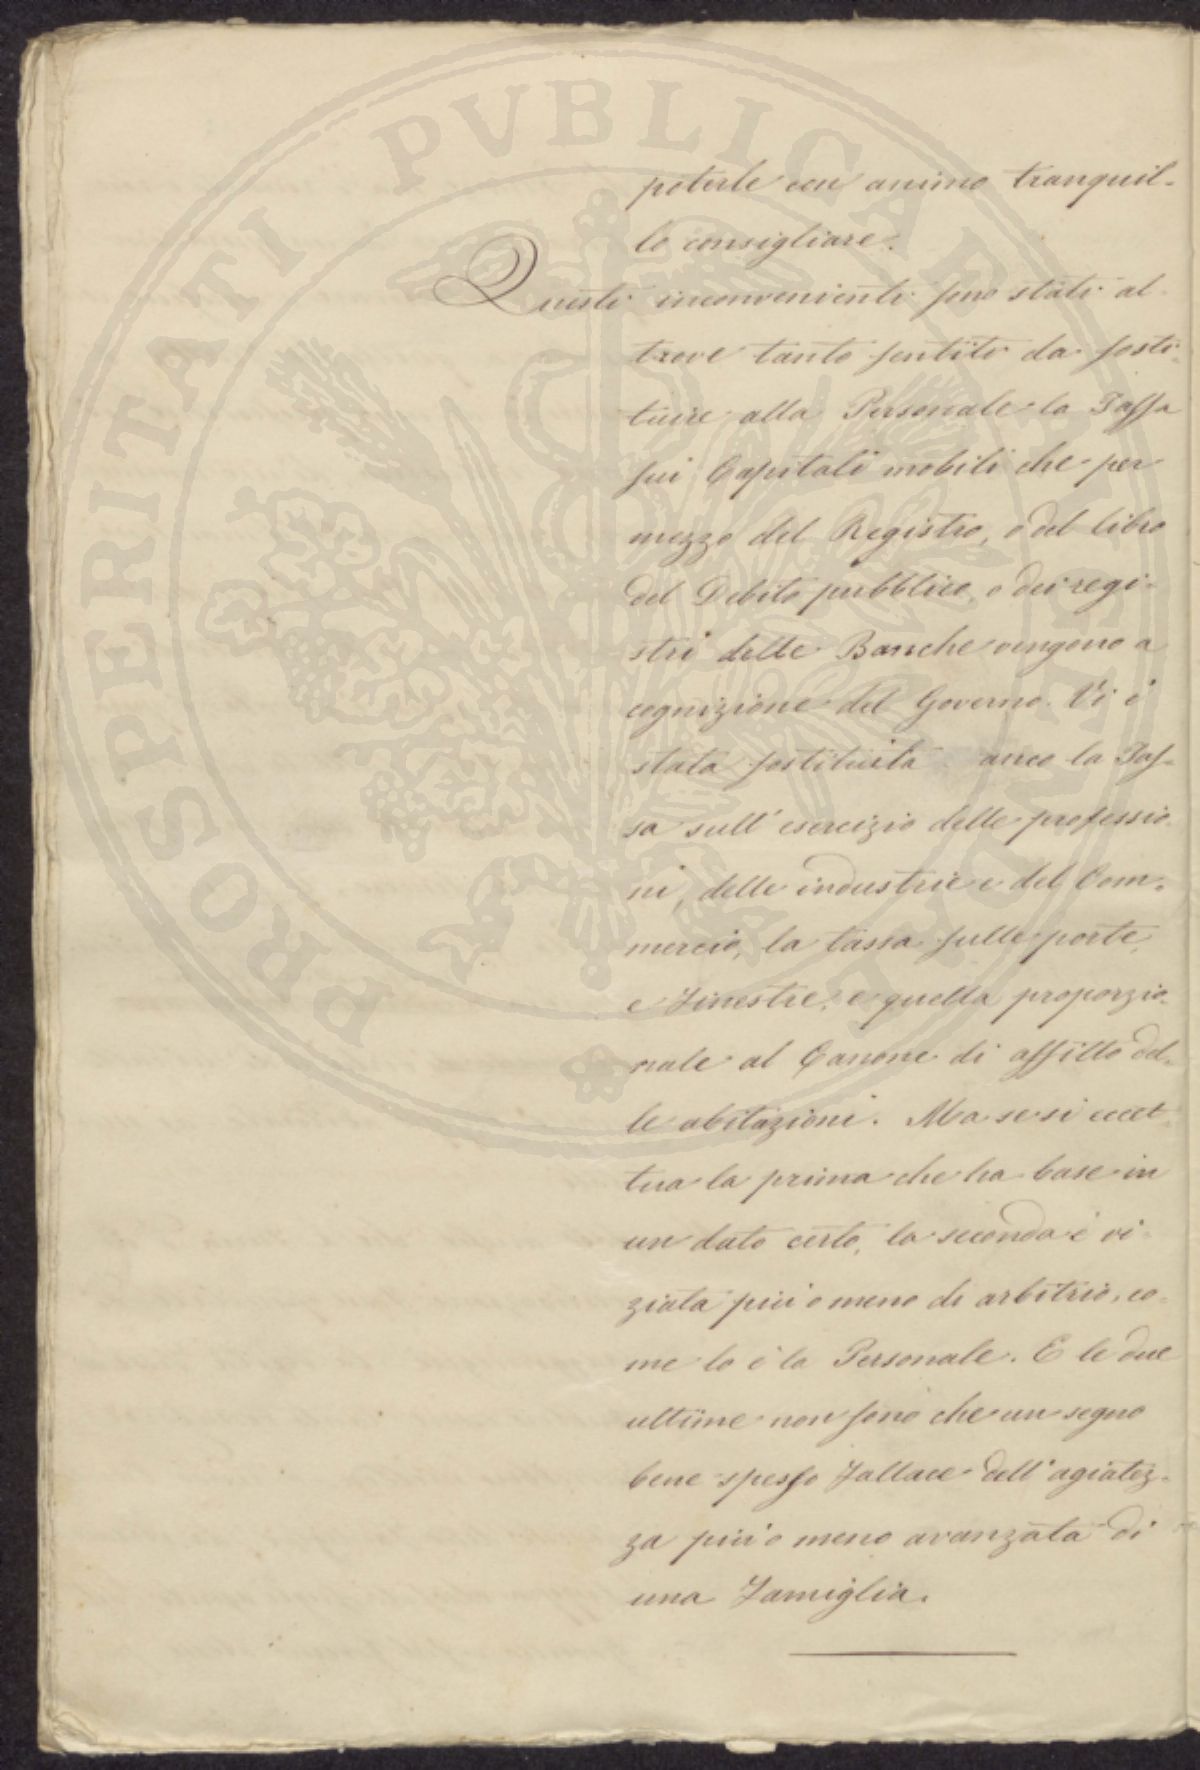 poterle con animo tranquil-
lo consigliare.
Questi inconvenienti sono stati al-
trove tanto sentiti da sosti-
tuire alla Personale la Tassa
sui Capitali mobili che per
mezzo del Registro, o del libro
del Debito pubblico, o dei regi-
stri delle Banche vengono a
cognizione del Governo. Vi è
stata sostituita anco la Tas-
sa sull'esercizio delle professio-
ni, delle industrie e del Com-
mercio, la tassa sulle porte,
e Finestre, e quella proporzio-
nale al Canone di affitto del-
le abitazioni. Ma se si eccet-
tua la prima che ha base in
un dato certo, la seconda è vi-
ziata più o meno di arbitrio, co-
me lo è la Personale. E le due
ultime non sono che un segno
bene spesso fallace dell'agiatez-
za più o meno avanzata di
una Famiglia.
PROSPERITATI PVBLICAE